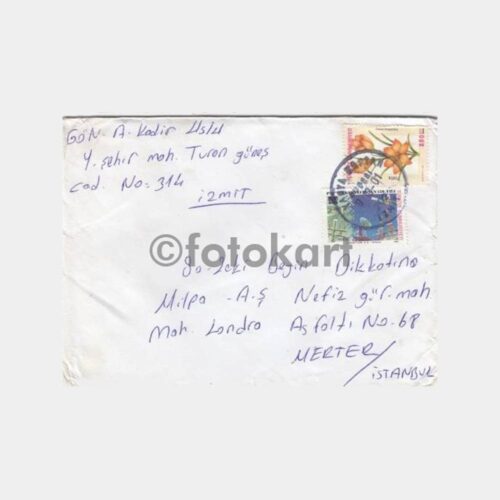 GÖN. A. Kadir Uslu
Y. Şehir mah. Turan güneş
cad. No: 314
İZMİT
©fotokart
Bey'in Dikkatine
Milpa - A.Ş Nafiz gür. mah
Mah. Londra Asfaltı No. 68
MERTER/
İSTANBUL